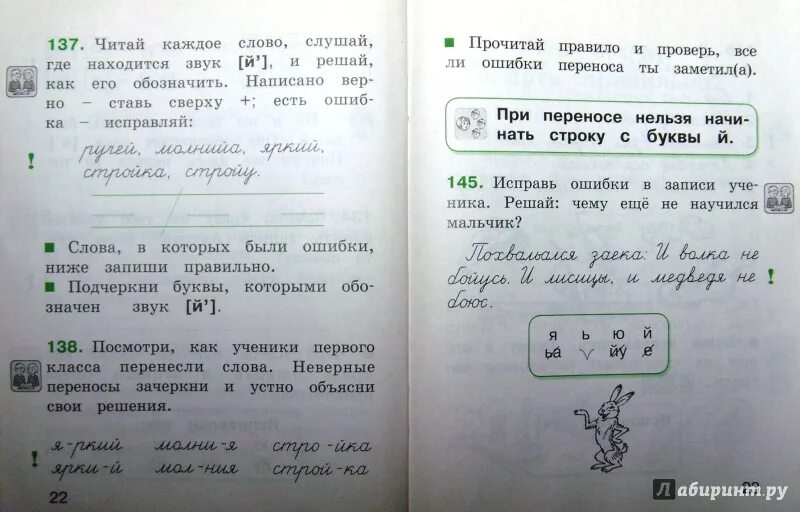 137. Читай каждое слово, слушай,
где находится звук [й'], и решай,
как его обозначить. Написано вер-
но – ставь сверху +; есть ошиб-
ка – исправляй:
! ручей, молнийа, яркий,
стройка, стройу.
Слова, в которых были ошибки,
ниже запиши правильно.
Подчеркни буквы, которыми обо-
значен звук [й'].
138. Посмотри, как ученики первого
класса перенесли слова. Неверные
переносы зачеркни и устно объясни
свои решения.
я-ркий молни-я стро-йка
! ярки-й мол-ния строй-ка
22
Прочитай правило и проверь, все
ли ошибки переноса ты заметил(а).
При переносе нельзя начи-
нать строку с буквы й.
145. Исправь ошибки в записи уче-
ника. Решай: чему ещё не научился
мальчик?
Похвальался заека: И волка не
бойусь. И лисицы, и медведя не !
боюс.
я ь ю й
ьа йу е
Лабиринт.ру